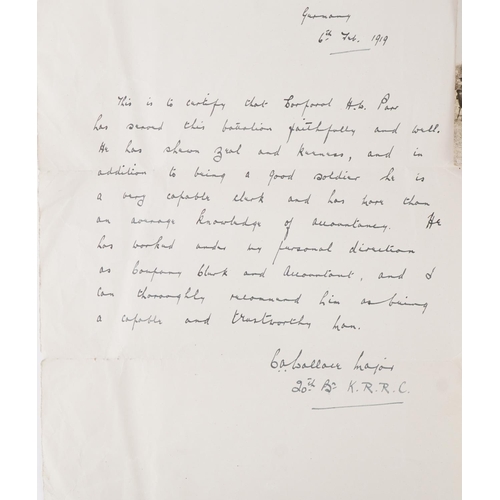 Germany
6th Feb. 1919
This is to certify that Corporal H.W. Parr
has served this battalion faithfully and well.
He has shewn zeal and keenness, and in
addition to being a good soldier he is
a very capable clerk and has more than
an average knowledge of accountancy. He
has worked under my personal direction
as Company Clerk and Accountant, and I
can thoroughly recommend him as being
a capable and trustworthy man.
Wallace Major
20th Bn K.R.R.C.